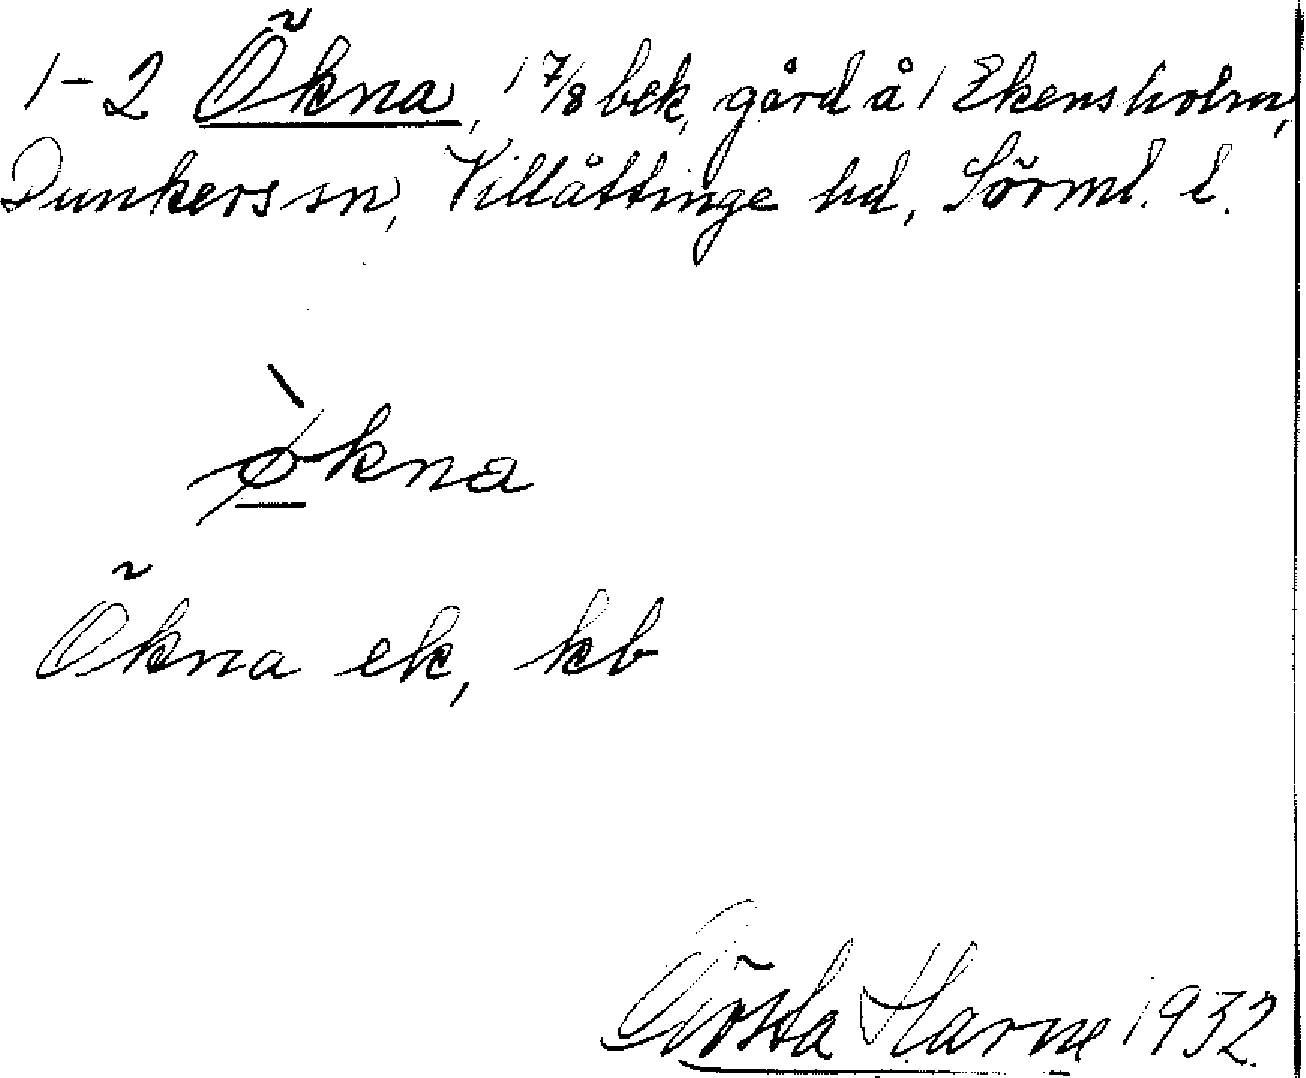 1-2 Ökna, 1 7/8 bek, gård å 1 Ekensholm,
Dunkers sn, Villåttinge hd, Sörml. l.
ø̀kna
Ökna ek, kb
Gösta Harne 1932.